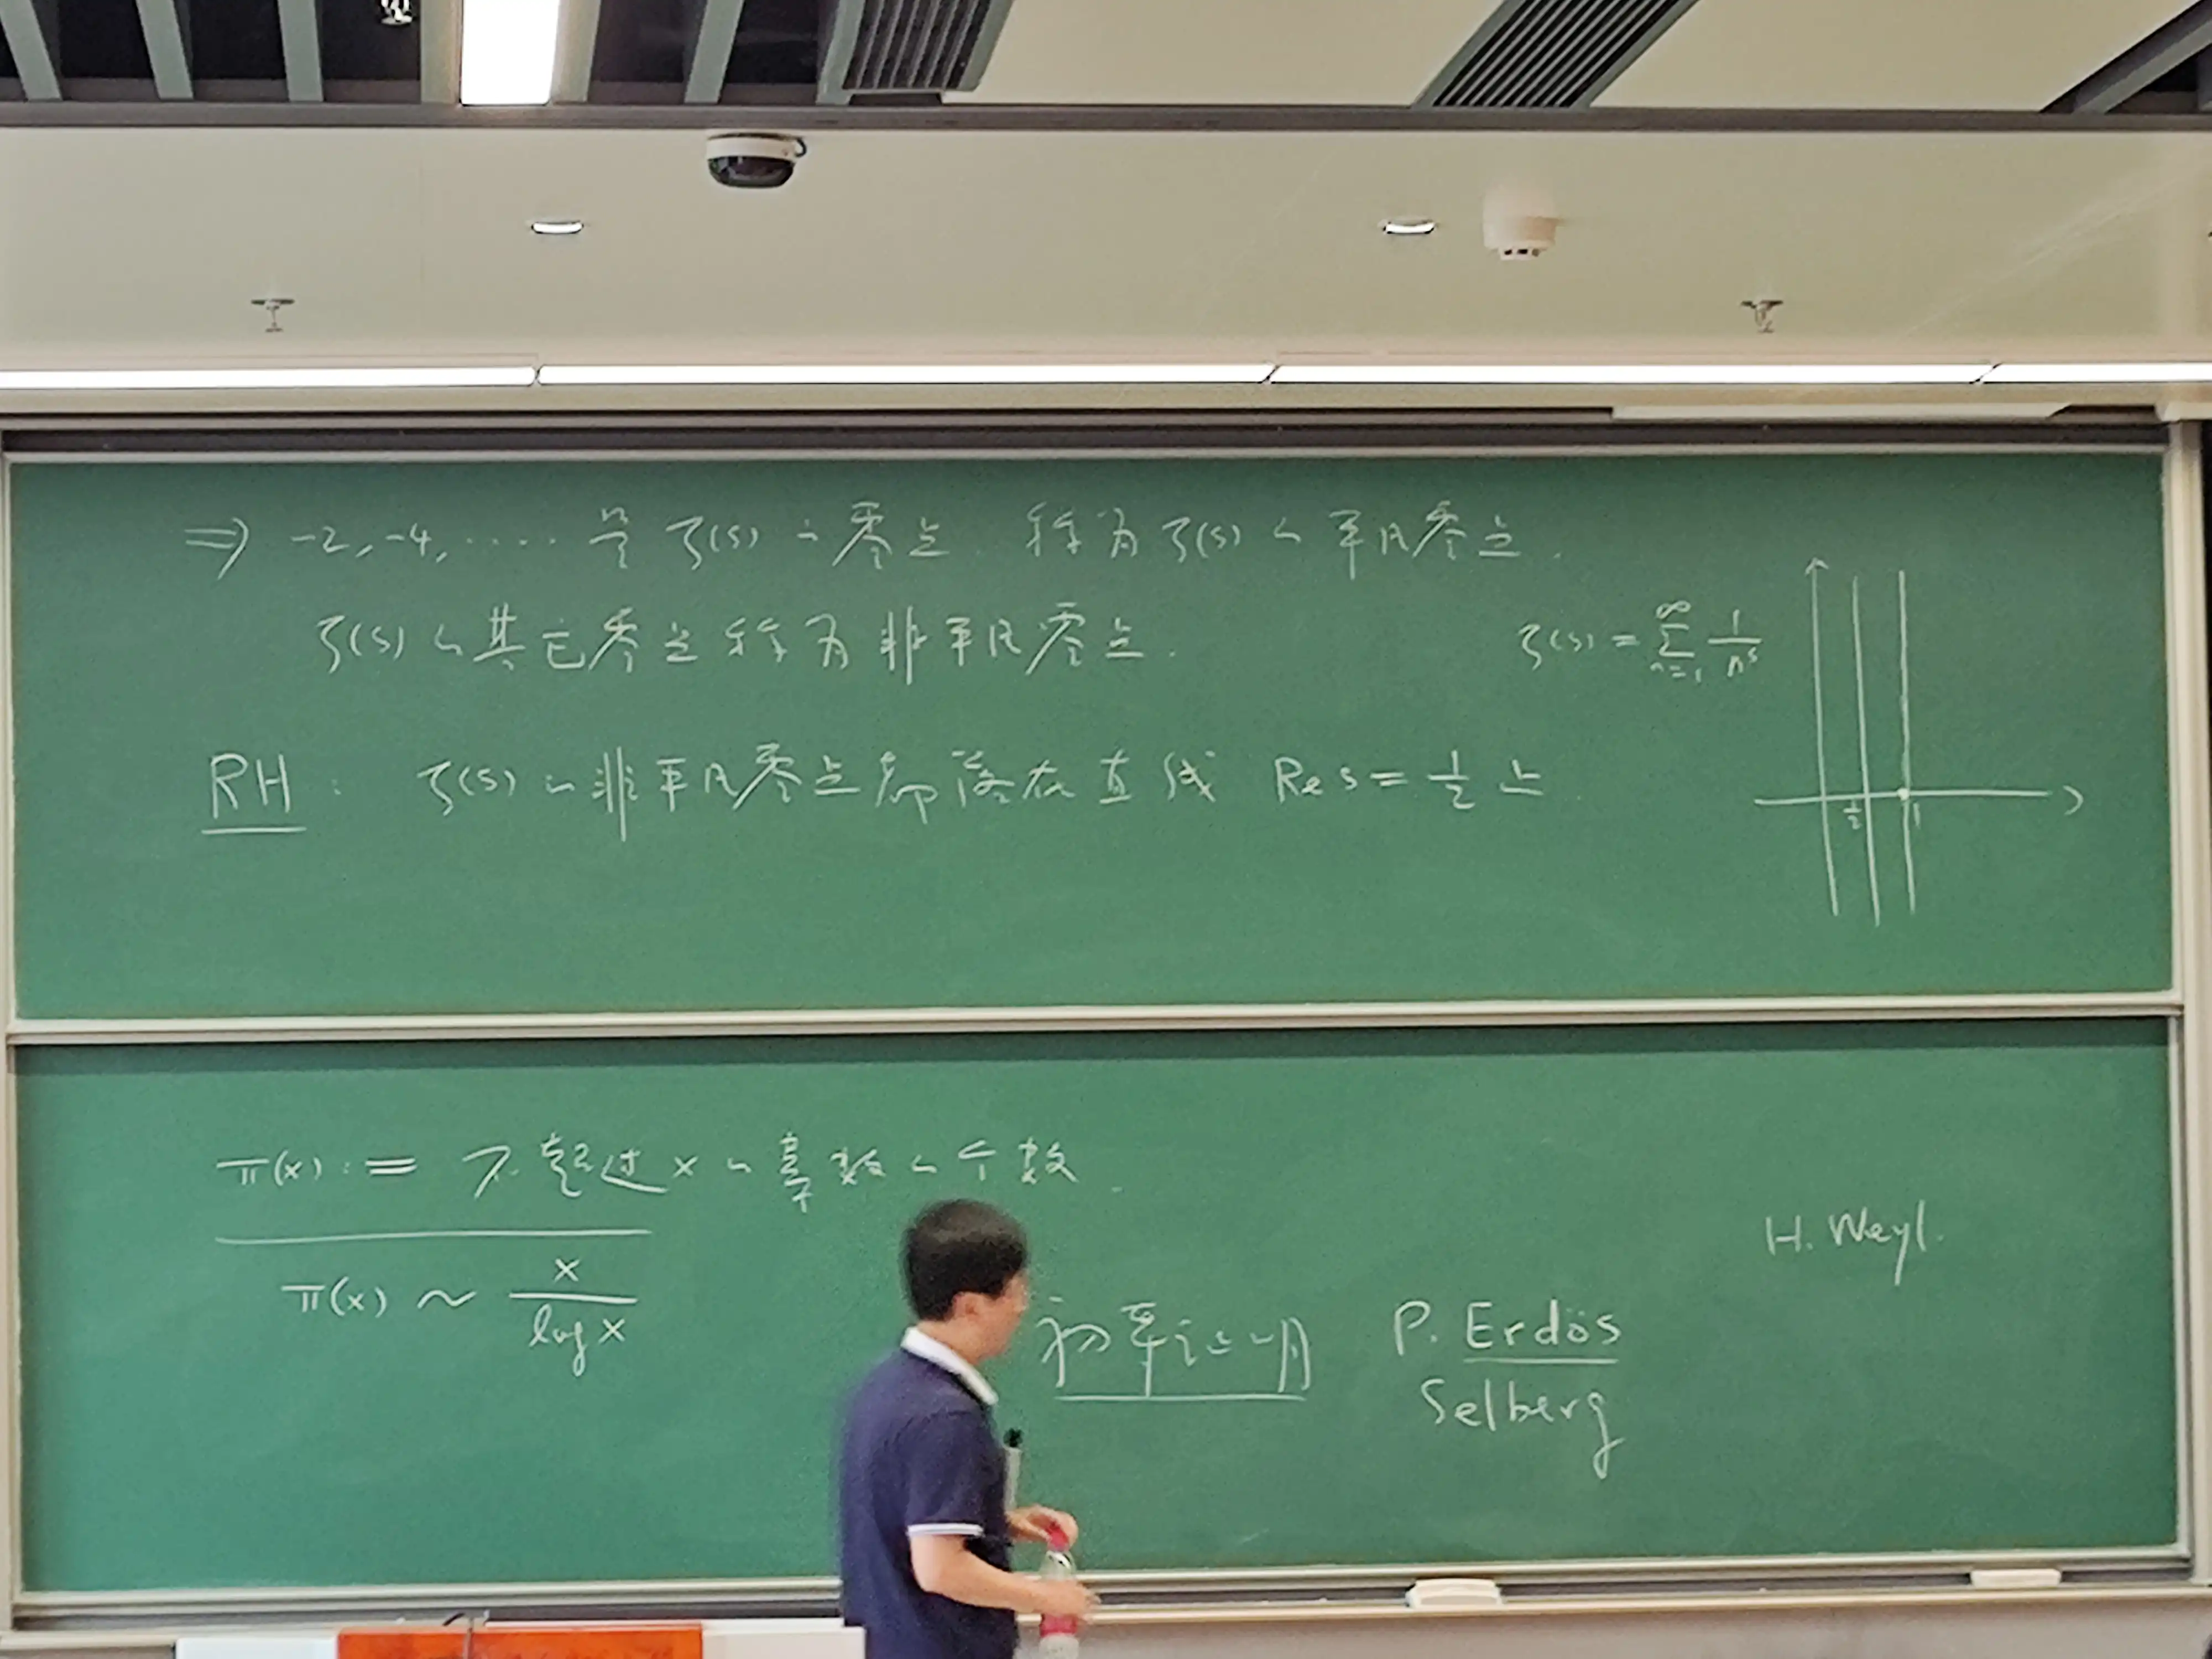 ⇒ -2, -4, ····· 是 ζ(s) 的零点. 称为 ζ(s) 的平凡零点.
ζ(s) 的其它零点称为非平凡零点.
ζ(s) = ∑_{n=1}^{∞} 1/n^s
RH : ζ(s) 的非平凡零点都落在直线 Re s = 1/2 上
1/2 1
π(x) := 不超过 x 的素数的个数.
π(x) ~ x / log x
初等证明
P. Erdös
Selberg
H. Weyl.